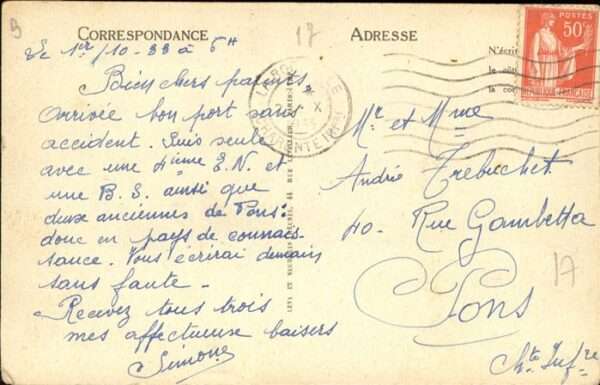 9
CORRESPONDANCE
17
ADRESSE
Le 1er/10-33 à 5H
Bien chers parents,
Arrivée bon port sans
accident. Suis seule
avec une 4ième E.N. et
une B.S. ainsi que
deux anciennes de Pons:
donc en pays de connais-
sance. Vous écrirai demain
sans faute.
Recevez tous trois
mes affectueux baisers
Simone
POSTES
50c
RÉPUBLIQUE FRANÇAISE
N'écri
le côt
la cor
CHARENTE INFRE
X
LEVY ET NEURDEIN RÉUNIS, 44 RUE LETELLIER, PARIS
Mr et Mme
André Trebuchet
40. Rue Gambetta
Pons
Chte Infre
17